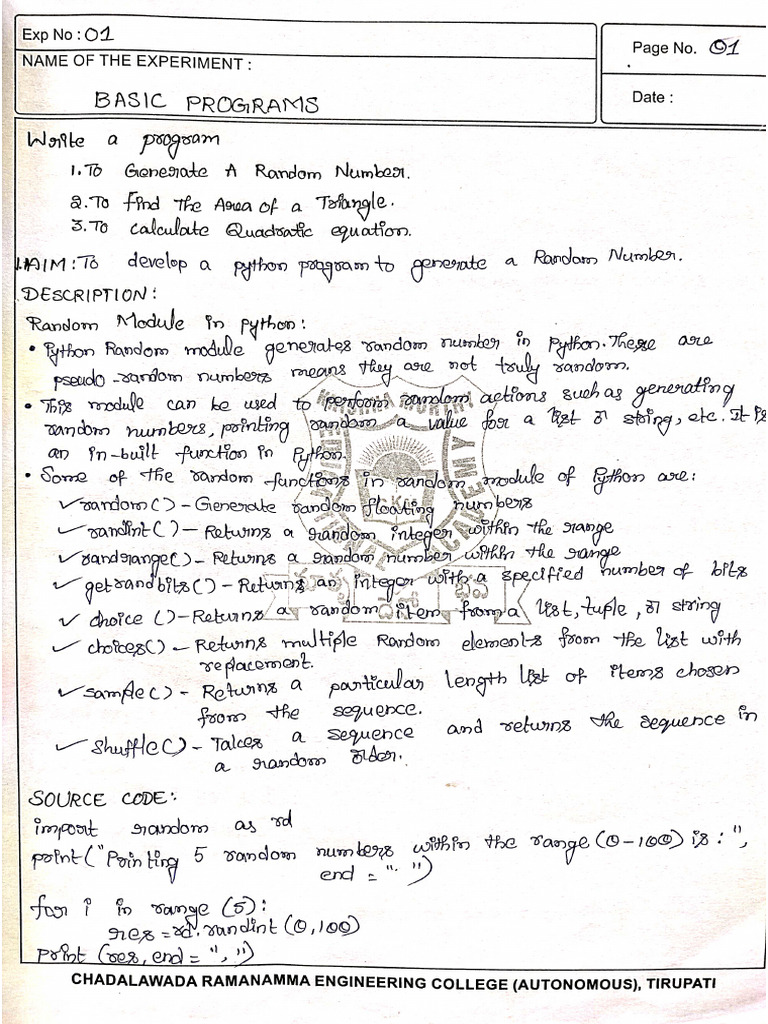 Exp No : 01
Page No. 01
NAME OF THE EXPERIMENT :
BASIC PROGRAMS
Date :
Write a program
1. To Generate A Random Number.
2. To Find The Area of a Triangle.
3. To calculate Quadratic equation.
1. AIM: To develop a python program to generate a Random Number.
DESCRIPTION:
Random Module in python:
• Python Random module generates random number in Python. These are
pseudo-random numbers means they are not truly random.
• This module can be used to perform random actions such as generating
random numbers, printing random a value for a list or string, etc. It is
an in-built function in Python.
• Some of the random functions in random module of Python are:
✓ random() - Generate random floating numbers
✓ randint() - Returns a random integer within the range
✓ randrange() - Returns a random number within the range
✓ getrandbits() - Returns an integer with a specified number of bits
✓ choice () - Returns a random item from a list, tuple, or string
✓ choices() - Returns multiple Random elements from the list with
replacement.
✓ sample() - Returns a particular length list of items chosen
from the sequence.
✓ shuffle() - Takes a sequence and returns the sequence in
a random order.
SOURCE CODE:
import random as rd
print("Printing 5 random numbers within the range (0-100) is :",
end = " ")
for i in range (5):
res = rd.randint (0,100)
print (res, end = ", ")
CHADALAWADA RAMANAMMA ENGINEERING COLLEGE (AUTONOMOUS), TIRUPATI